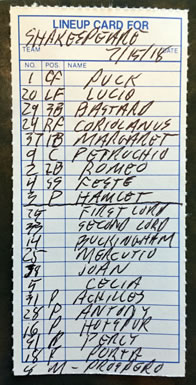 LINEUP CARD FOR
SHAKESPEARE
7/15/18
TEAM DATE
NO. POS. NAME
1 CF PUCK
20 LF LUCIO
29 3B BASTARD
24 RF CORIOLANUS
37 1B MARGARET
9 C PETRUCHIO
2 2B ROMEO
4 SS FESTE
3 P HAMLET
FIRST LORD
SECOND LORD
14 BUCKINGHAM
25 MERCUTIO
JOAN
5 CELIA
31 P ACHILLES
28 P ANTONY
16 P HOTSPUR
P PERCY
18 P PORTIA
M - PROSPERO